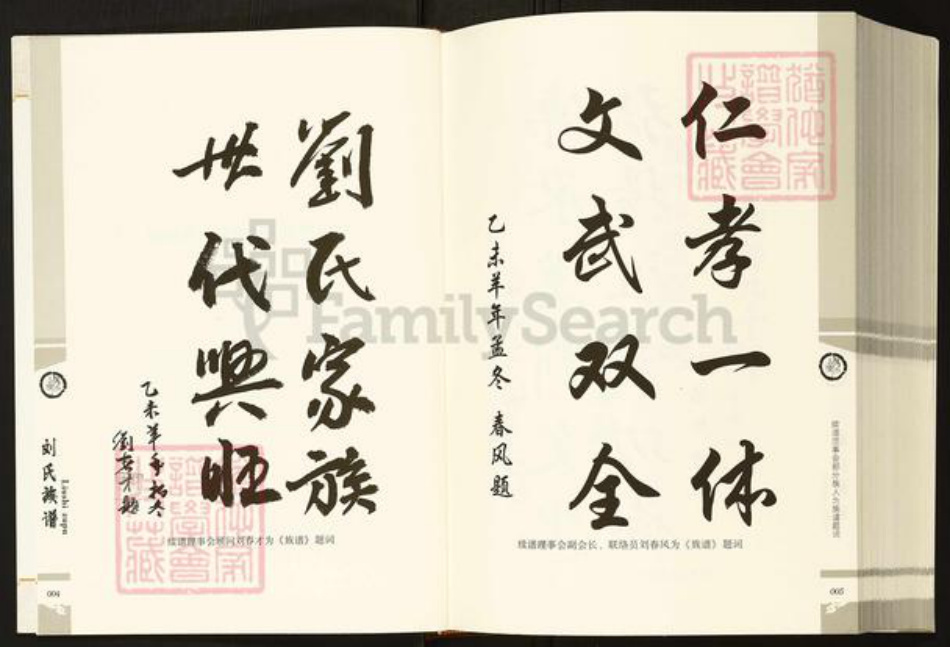 仁孝一体
文武双全
乙未羊年孟冬 春风题
续谱理事会副会长、联络员刘春风为《族谱》题词
续谱理事会部分族人为族谱题词
005
劉氏家族
世代興旺
乙未羊年初冬
劉春才題
续谱理事会顾问刘春才为《族谱》题词
刘氏族谱
Liushi zupu
004
FamilySearch